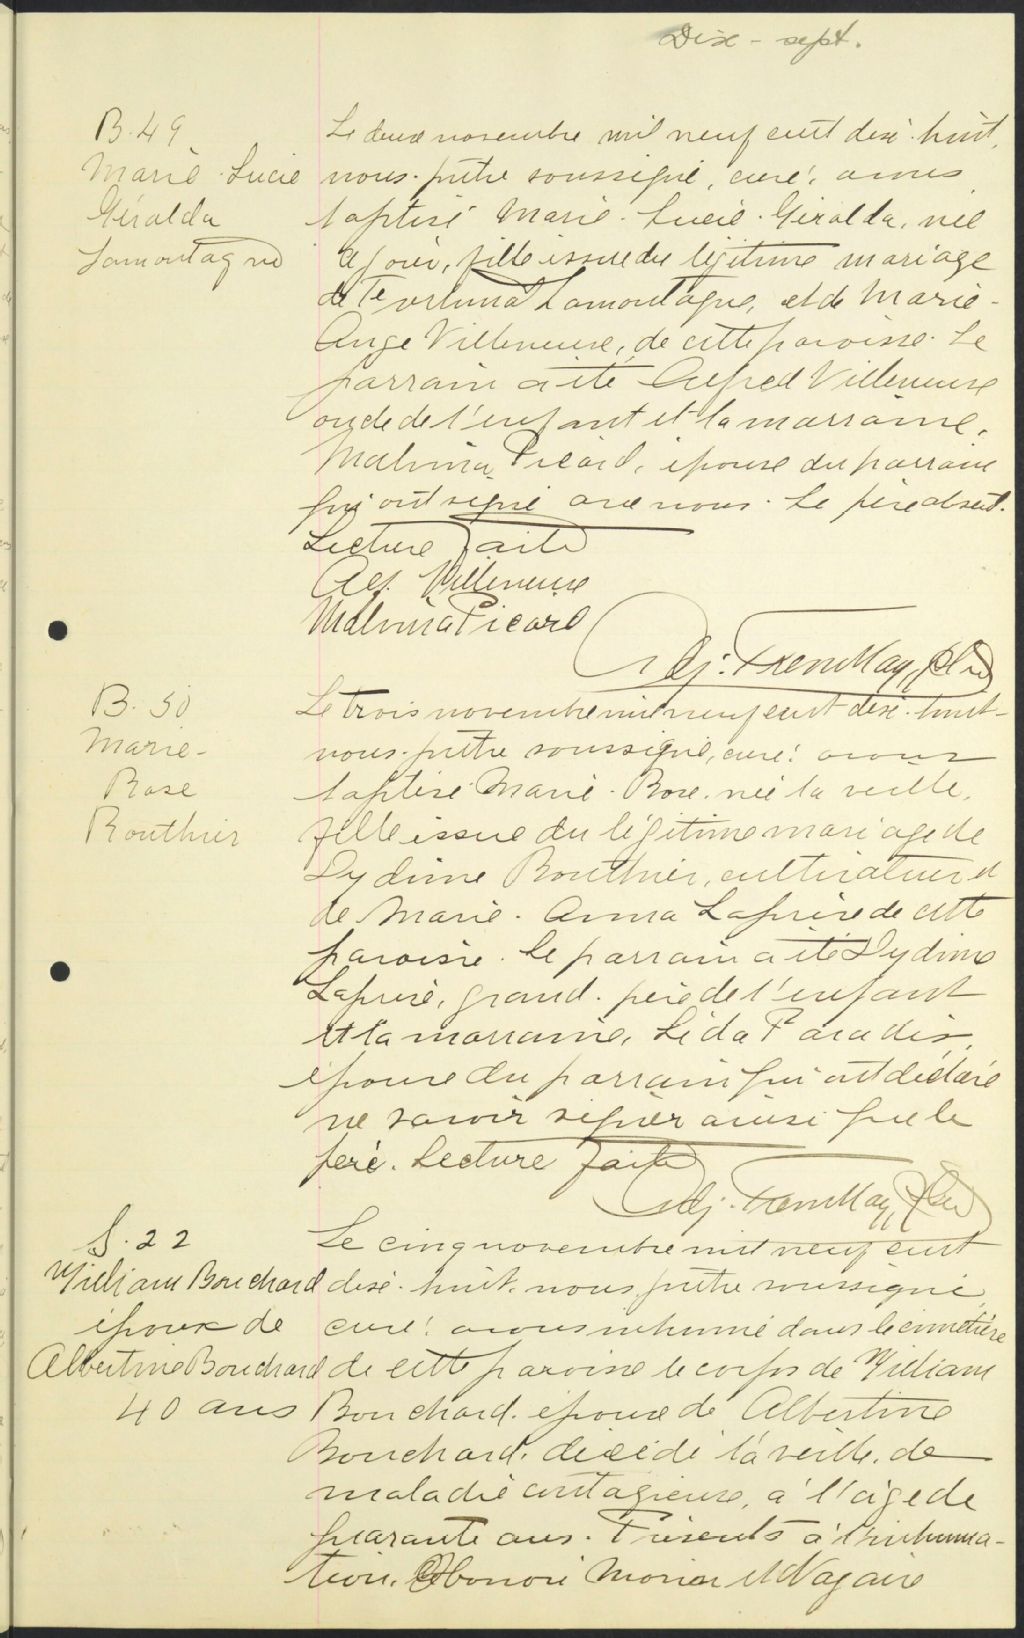 Dix-sept.
B. 49
Marie-Lucie
Géralda
Lamontagne
Le deux novembre mil neuf cent dix-huit,
nous prêtre soussigné, curé, avons
baptisé Marie-Lucie-Géralda, née
ce jour, fille issue du légitime mariage
de Fortunat Lamontagne, et de Marie-
Ange Villeneuve, de cette paroisse. Le
parrain a été Alfred Villeneuve
oncle de l'enfant et la marraine,
Malvina Picard, épouse du parrain
qui ont signé avec nous. Le père absent.
Lecture faite
Alf. Villeneuve
Malvina Picard
Adj. Tremblay, ptre
B. 50
Marie-
Rose
Routhier
Le trois novembre mil neuf cent dix-huit
nous prêtre soussigné, curé, avons
baptisé Marie-Rose, née la veille,
fille issue du légitime mariage de
Dydime Routhier, cultivateur et
de Marie-Anna Laprise de cette
paroisse. Le parrain a été Dydime
Laprise, grand-père de l'enfant
et la marraine, Léda Paradis,
épouse du parrain qui ont déclaré
ne savoir signer ainsi que le
père. Lecture faite
Adj. Tremblay, ptre
S. 22
William Bouchard
époux de
Albertine Bouchard
40 ans
Le cinq novembre mil neuf cent
dix-huit, nous prêtre soussigné
curé, avons inhumé dans le cimetière
de cette paroisse le corps de William
Bouchard, époux de Albertine
Bouchard, décédé la veille, de
maladie contagieuse, à l'âge de
quarante ans. Présents à l'inhuma-
tion, Honoré Morin et Nazaire